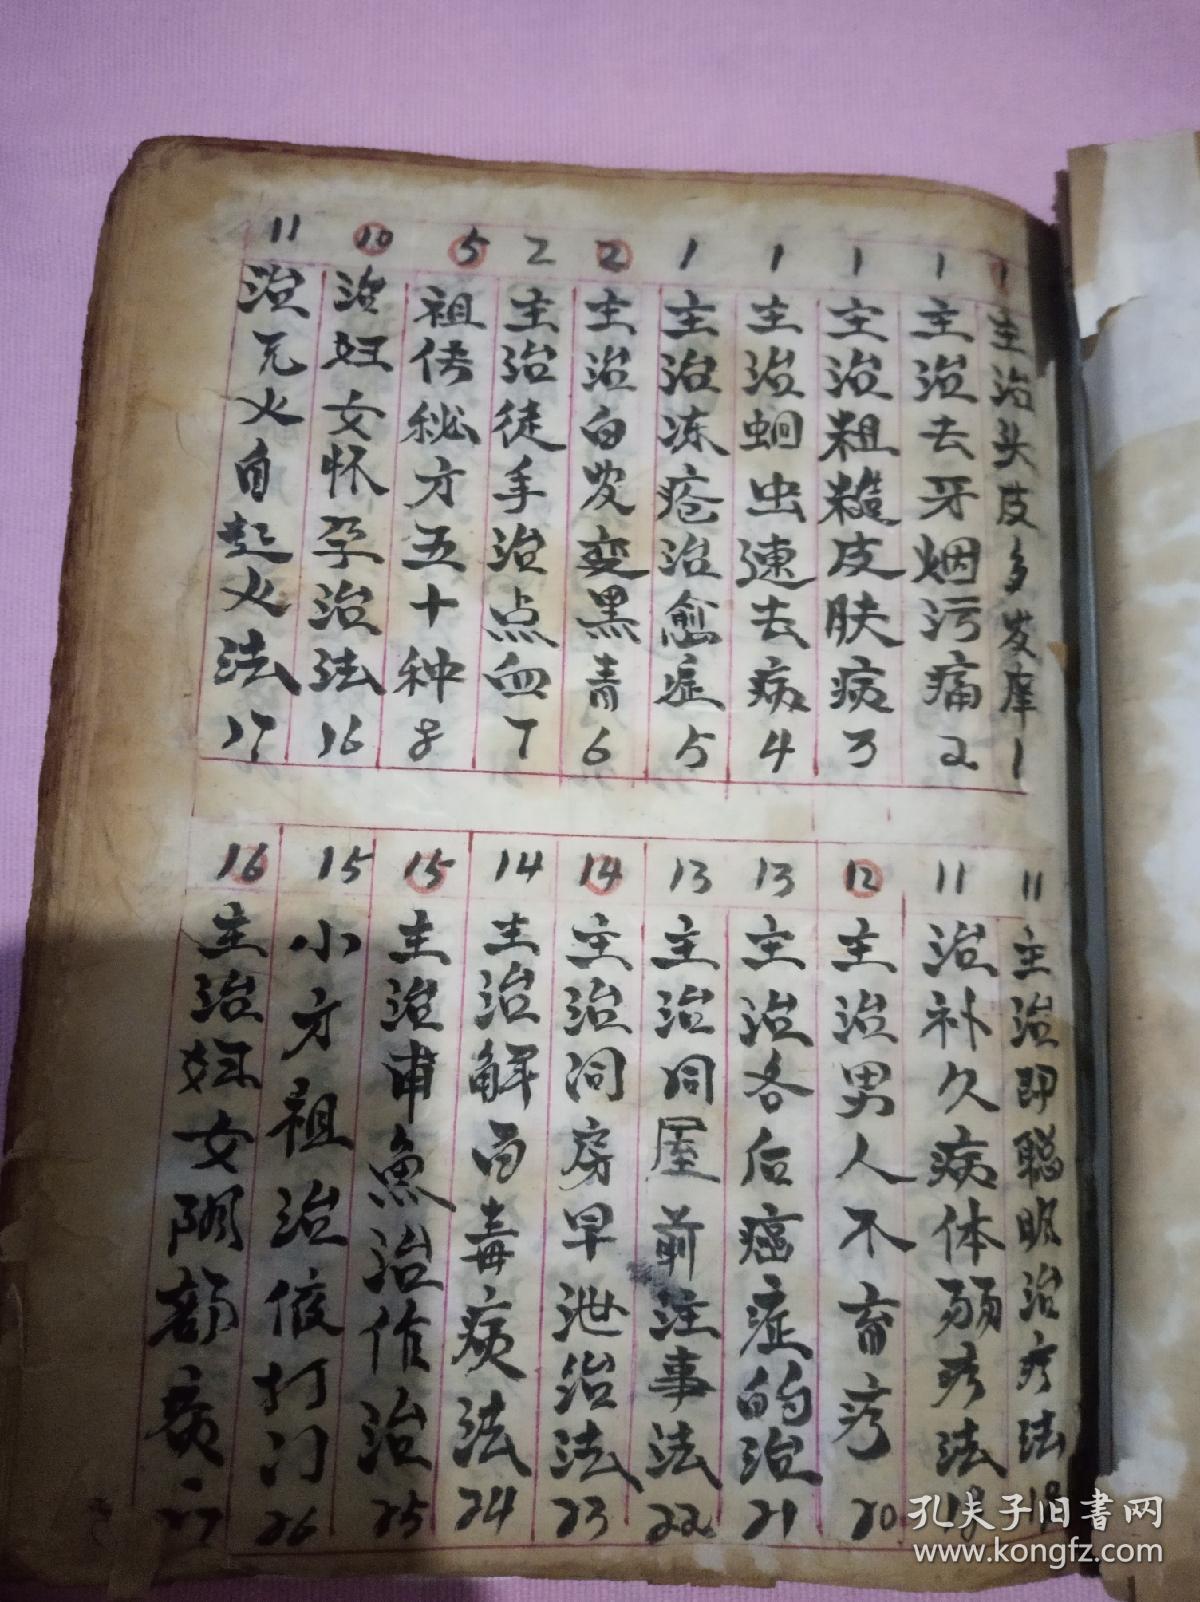 1 主治头皮多发痒 1
1 主治去牙烟污痛 2
1 主治粗糙皮肤病 3
1 主治蛔虫速去病 4
1 主治冻疮治愈症 5
2 主治白发变黑青 6
2 主治徒手治点血 7
5 祖传秘方五十种 8
10 治妇女怀孕治法 16
11 治无火自起火法 17
11 主治即聪明治疗法 18
11 治补久病体弱疗法 19
12 主治男人不育疗 20
13 主治各后癌症的治 21
13 主治同屋前注事法 22
14 主治同房早泄治法 23
14 主治解百毒病法 24
15 主治甫鱼治作治 25
15 小方祖治 打门 26
16 主治妇女阴部病 27
孔夫子旧书网
www.kongfz.com